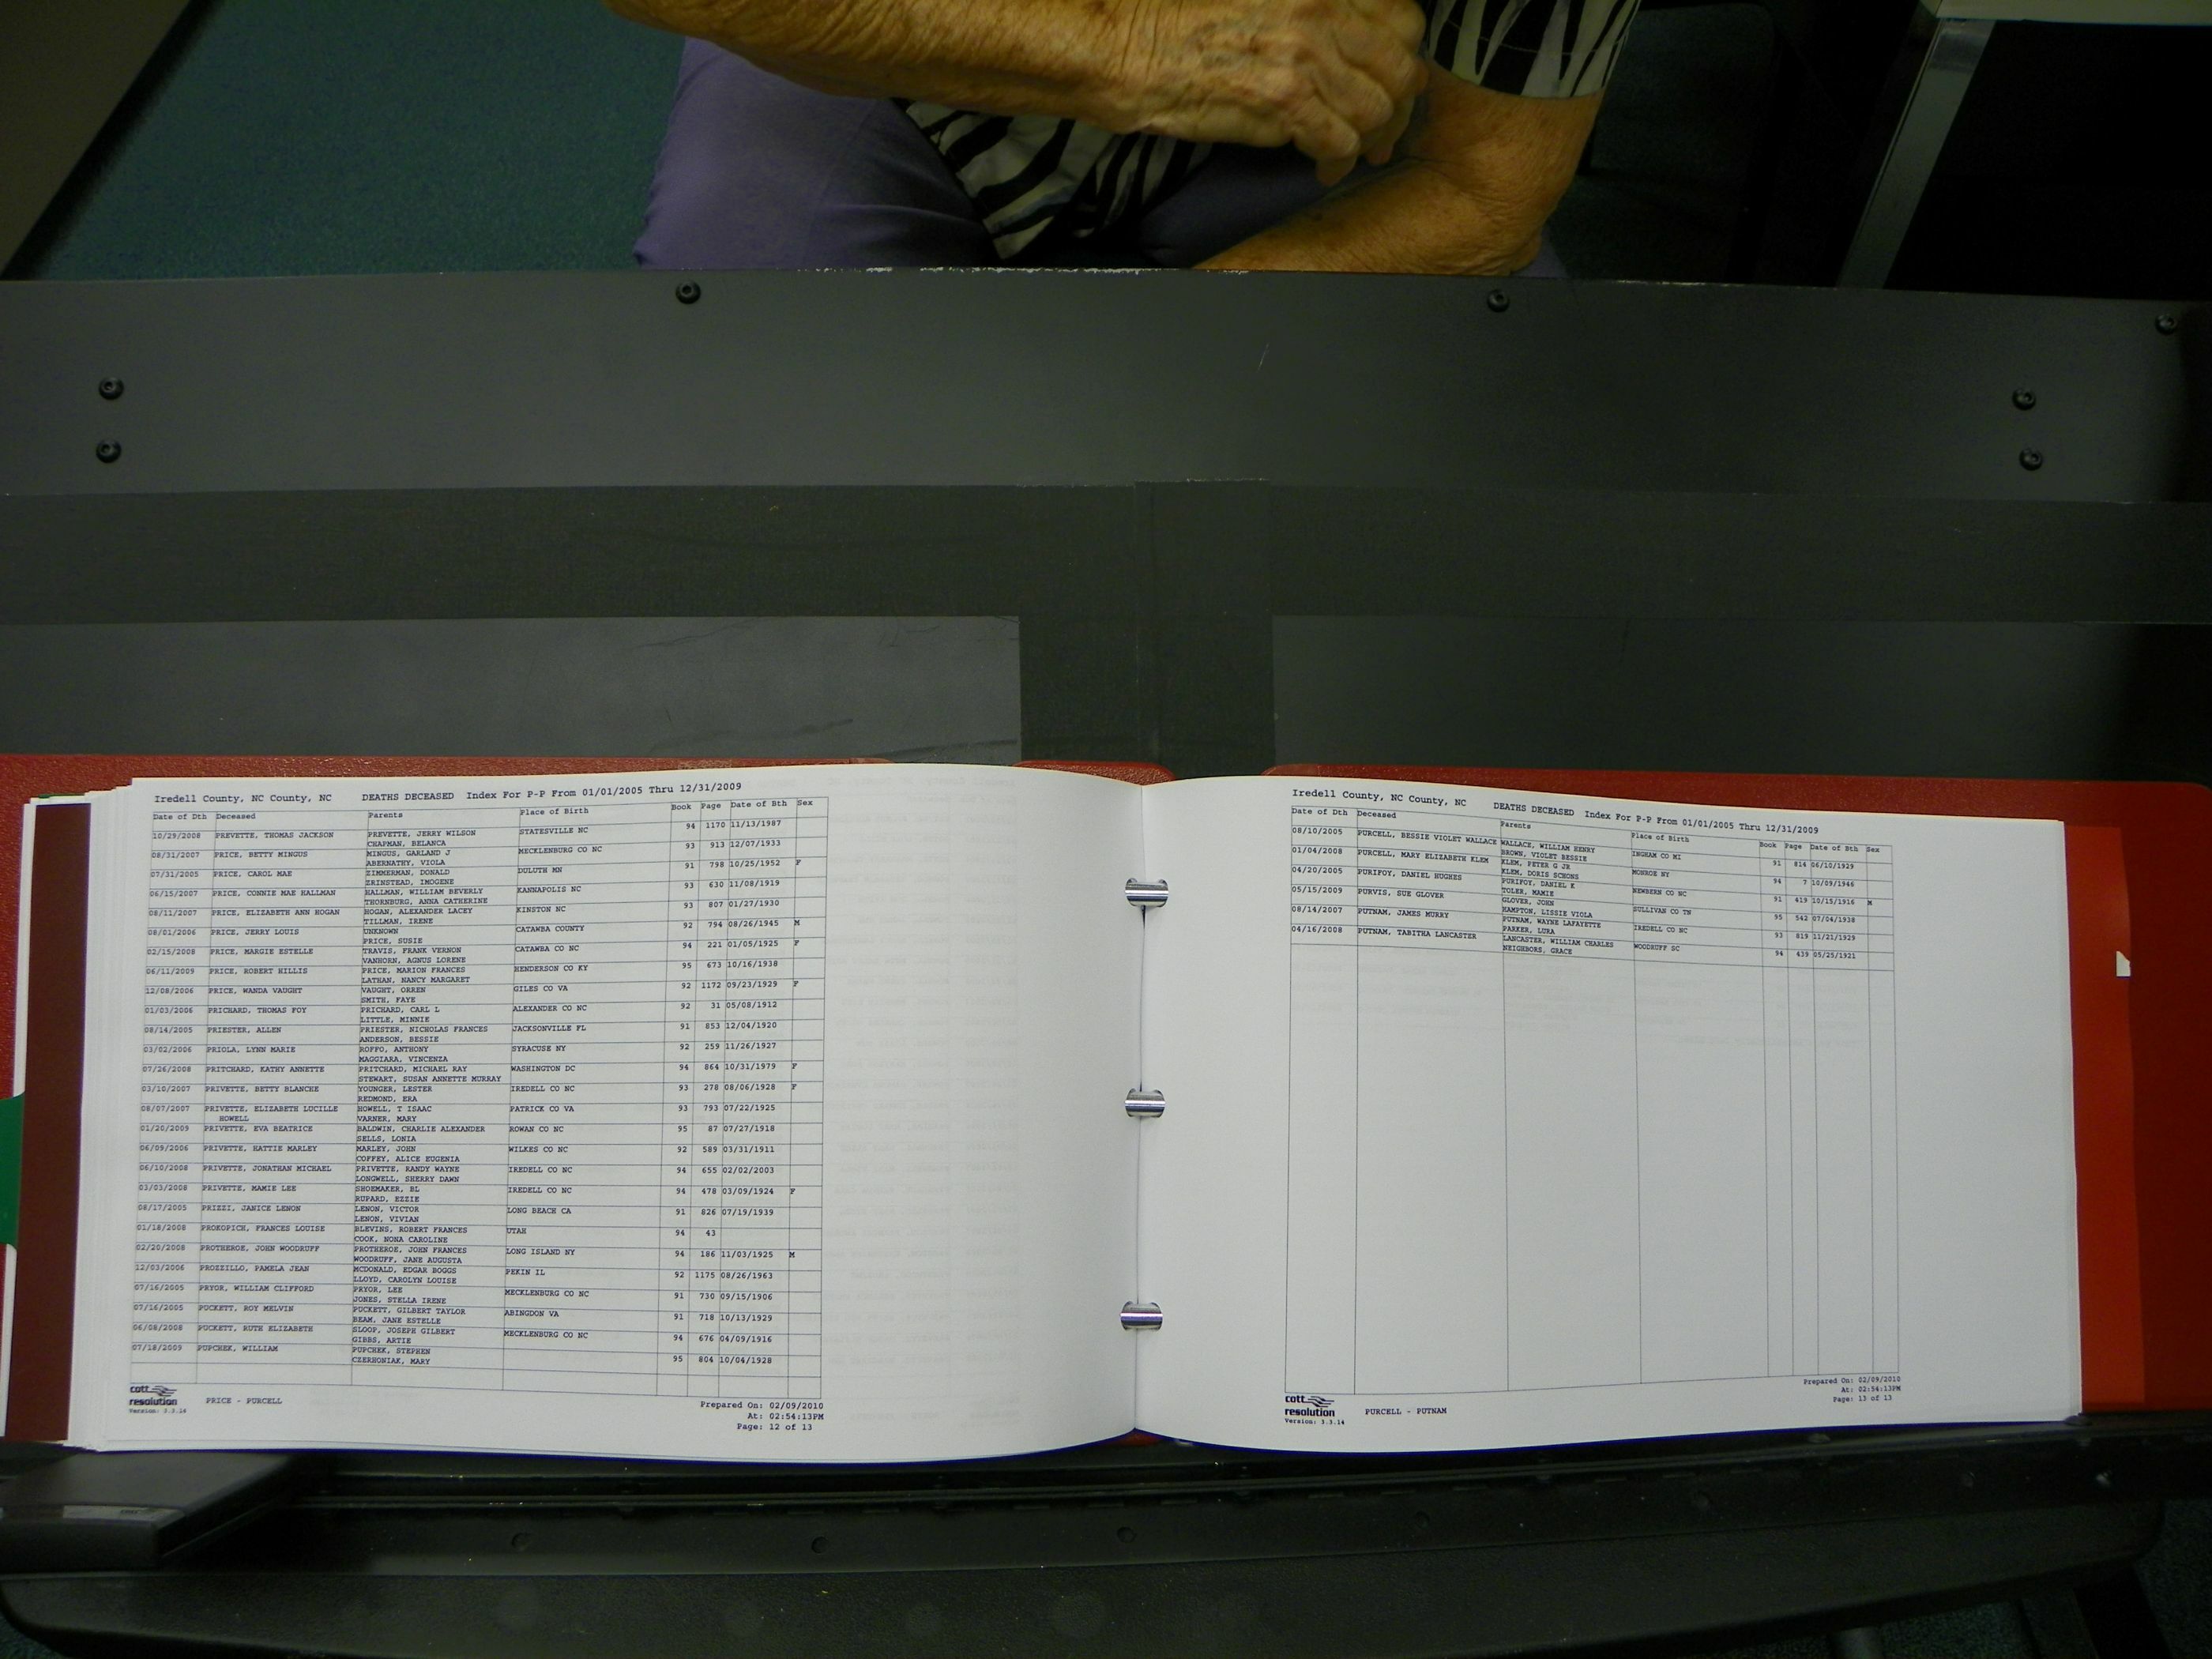 Iredell County, NC County, NC DEATHS DECEASED Index For P-P From 01/01/2005 Thru 12/31/2009
Date of Dth Deceased Parents Place of Birth Book Page Date of Bth Sex
10/29/2008 PREVETTE, THOMAS JACKSON PREVETTE, JERRY WILSON STATESVILLE NC 94 1170 11/13/1987
CHAPMAN, BELANCA
08/31/2007 PRICE, BETTY MINGUS MINGUS, GARLAND J MECKLENBURG CO NC 93 913 12/07/1933
ABERNATHY, VIOLA
07/31/2005 PRICE, CAROL MAE ZIMMERMAN, DONALD DULUTH MN 91 798 10/25/1952 F
ZRINSTEAD, IMOGENE
06/15/2007 PRICE, CONNIE MAE HALLMAN HALLMAN, WILLIAM BEVERLY KANNAPOLIS NC 93 630 11/08/1919
THORNBURG, ANNA CATHERINE
08/11/2007 PRICE, ELIZABETH ANN HOGAN HOGAN, ALEXANDER LACEY KINSTON NC 93 807 01/27/1930
TILLMAN, IRENE
08/01/2006 PRICE, JERRY LOUIS UNKNOWN CATAWBA COUNTY 92 794 08/26/1945 M
PRICE, SUSIE
02/15/2008 PRICE, MARGIE ESTELLE TRAVIS, FRANK VERNON CATAWBA CO NC 94 221 01/05/1925 F
VANHORN, AGNUS LORENE
06/11/2009 PRICE, ROBERT HILLIS PRICE, MARION FRANCES HENDERSON CO KY 95 673 10/16/1938
LATHAN, NANCY MARGARET
12/08/2006 PRICE, WANDA VAUGHT VAUGHT, ORREN GILES CO VA 92 1172 09/23/1929 F
SMITH, FAYE
01/03/2006 PRICHARD, THOMAS FOY PRICHARD, CARL L ALEXANDER CO NC 92 31 05/08/1912
LITTLE, MINNIE
08/14/2005 PRIESTER, ALLEN PRIESTER, NICHOLAS FRANCES JACKSONVILLE FL 91 853 12/04/1920
ANDERSON, BESSIE
03/02/2006 PRIOLA, LYNN MARIE ROFFO, ANTHONY SYRACUSE NY 92 259 11/26/1927
MAGGIARA, VINCENZA
07/26/2008 PRITCHARD, KATHY ANNETTE PRITCHARD, MICHAEL RAY WASHINGTON DC 94 864 10/31/1979 F
STEWART, SUSAN ANNETTE MURRAY
03/10/2007 PRIVETTE, BETTY BLANCHE YOUNGER, LESTER IREDELL CO NC 93 278 08/06/1928 F
REDMOND, ERA
08/07/2007 PRIVETTE, ELIZABETH LUCILLE HOWELL, T ISAAC PATRICK CO VA 93 793 07/22/1925
HOWELL VARNER, MARY
01/20/2009 PRIVETTE, EVA BEATRICE BALDWIN, CHARLIE ALEXANDER ROWAN CO NC 95 87 07/27/1918
SELLS, LONIA
06/09/2006 PRIVETTE, HATTIE MARLEY MARLEY, JOHN WILKES CO NC 92 589 03/31/1911
COFFEY, ALICE EUGENIA
06/10/2008 PRIVETTE, JONATHAN MICHAEL PRIVETTE, RANDY WAYNE IREDELL CO NC 94 655 02/02/2003
LONGWELL, SHERRY DAWN
03/03/2008 PRIVETTE, MAMIE LEE SHOEMAKER, BL IREDELL CO NC 94 478 03/09/1924 F
RUPARD, EZZIE
08/17/2005 PRIZZI, JANICE LENON LENON, VICTOR LONG BEACH CA 91 826 07/19/1939
LENON, VIVIAN
01/18/2008 PROKOPICH, FRANCES LOUISE BLEVINS, ROBERT FRANCES UTAH 94 43
COOK, NONA CAROLINE
02/20/2008 PROTHEROE, JOHN WOODRUFF PROTHEROE, JOHN FRANCES LONG ISLAND NY 94 186 11/03/1925 M
WOODRUFF, JANE AUGUSTA
12/03/2006 PROZZILLO, PAMELA JEAN MCDONALD, EDGAR BOGGS PEKIN IL 92 1175 08/26/1963
LLOYD, CAROLYN LOUISE
07/16/2005 PRYOR, WILLIAM CLIFFORD PRYOR, LEE MECKLENBURG CO NC 91 730 09/15/1906
JONES, STELLA IRENE
07/16/2005 PUCKETT, ROY MELVIN PUCKETT, GILBERT TAYLOR ABINGDON VA 91 718 10/13/1929
BEAM, JANE ESTELLE
06/08/2008 PUCKETT, RUTH ELIZABETH SLOOP, JOSEPH GILBERT MECKLENBURG CO NC 94 676 04/09/1916
GIBBS, ARTIE
07/18/2009 PUPCHEK, WILLIAM PUPCHEK, STEPHEN 95 804 10/04/1928
CZERHONIAK, MARY
cott
resolution PRICE - PURCELL
Version: 3.3.14
Prepared On: 02/09/2010
At: 02:54:13PM
Page: 12 of 13
Iredell County, NC County, NC DEATHS DECEASED Index For P-P From 01/01/2005 Thru 12/31/2009
Date of Dth Deceased Parents Place of Birth Book Page Date of Bth Sex
08/10/2005 PURCELL, BESSIE VIOLET WALLACE WALLACE, WILLIAM HENRY INGHAM CO MI 91 814 06/10/1929
BROWN, VIOLET BESSIE
01/04/2008 PURCELL, MARY ELIZABETH KLEM KLEM, PETER G JR MONROE NY 94 7 10/09/1946
KLEM, DORIS SCHONS
04/20/2005 PURIFOY, DANIEL HUGHES PURIFOY, DANIEL K NEWBERN CO NC 91 419 10/15/1916 M
TOLER, MAMIE
05/15/2009 PURVIS, SUE GLOVER GLOVER, JOHN SULLIVAN CO TN 95 542 07/04/1938
HAMPTON, LISSIE VIOLA
08/14/2007 PUTNAM, JAMES MURRY PUTNAM, WAYNE LAFAYETTE IREDELL CO NC 93 819 11/21/1929
PARKER, LURA
04/16/2008 PUTNAM, TABITHA LANCASTER LANCASTER, WILLIAM CHARLES WOODRUFF SC 94 439 05/25/1921
NEIGHBORS, GRACE
cott
resolution PURCELL - PUTNAM
Version: 3.3.14
Prepared On: 02/09/2010
At: 02:54:13PM
Page: 13 of 13